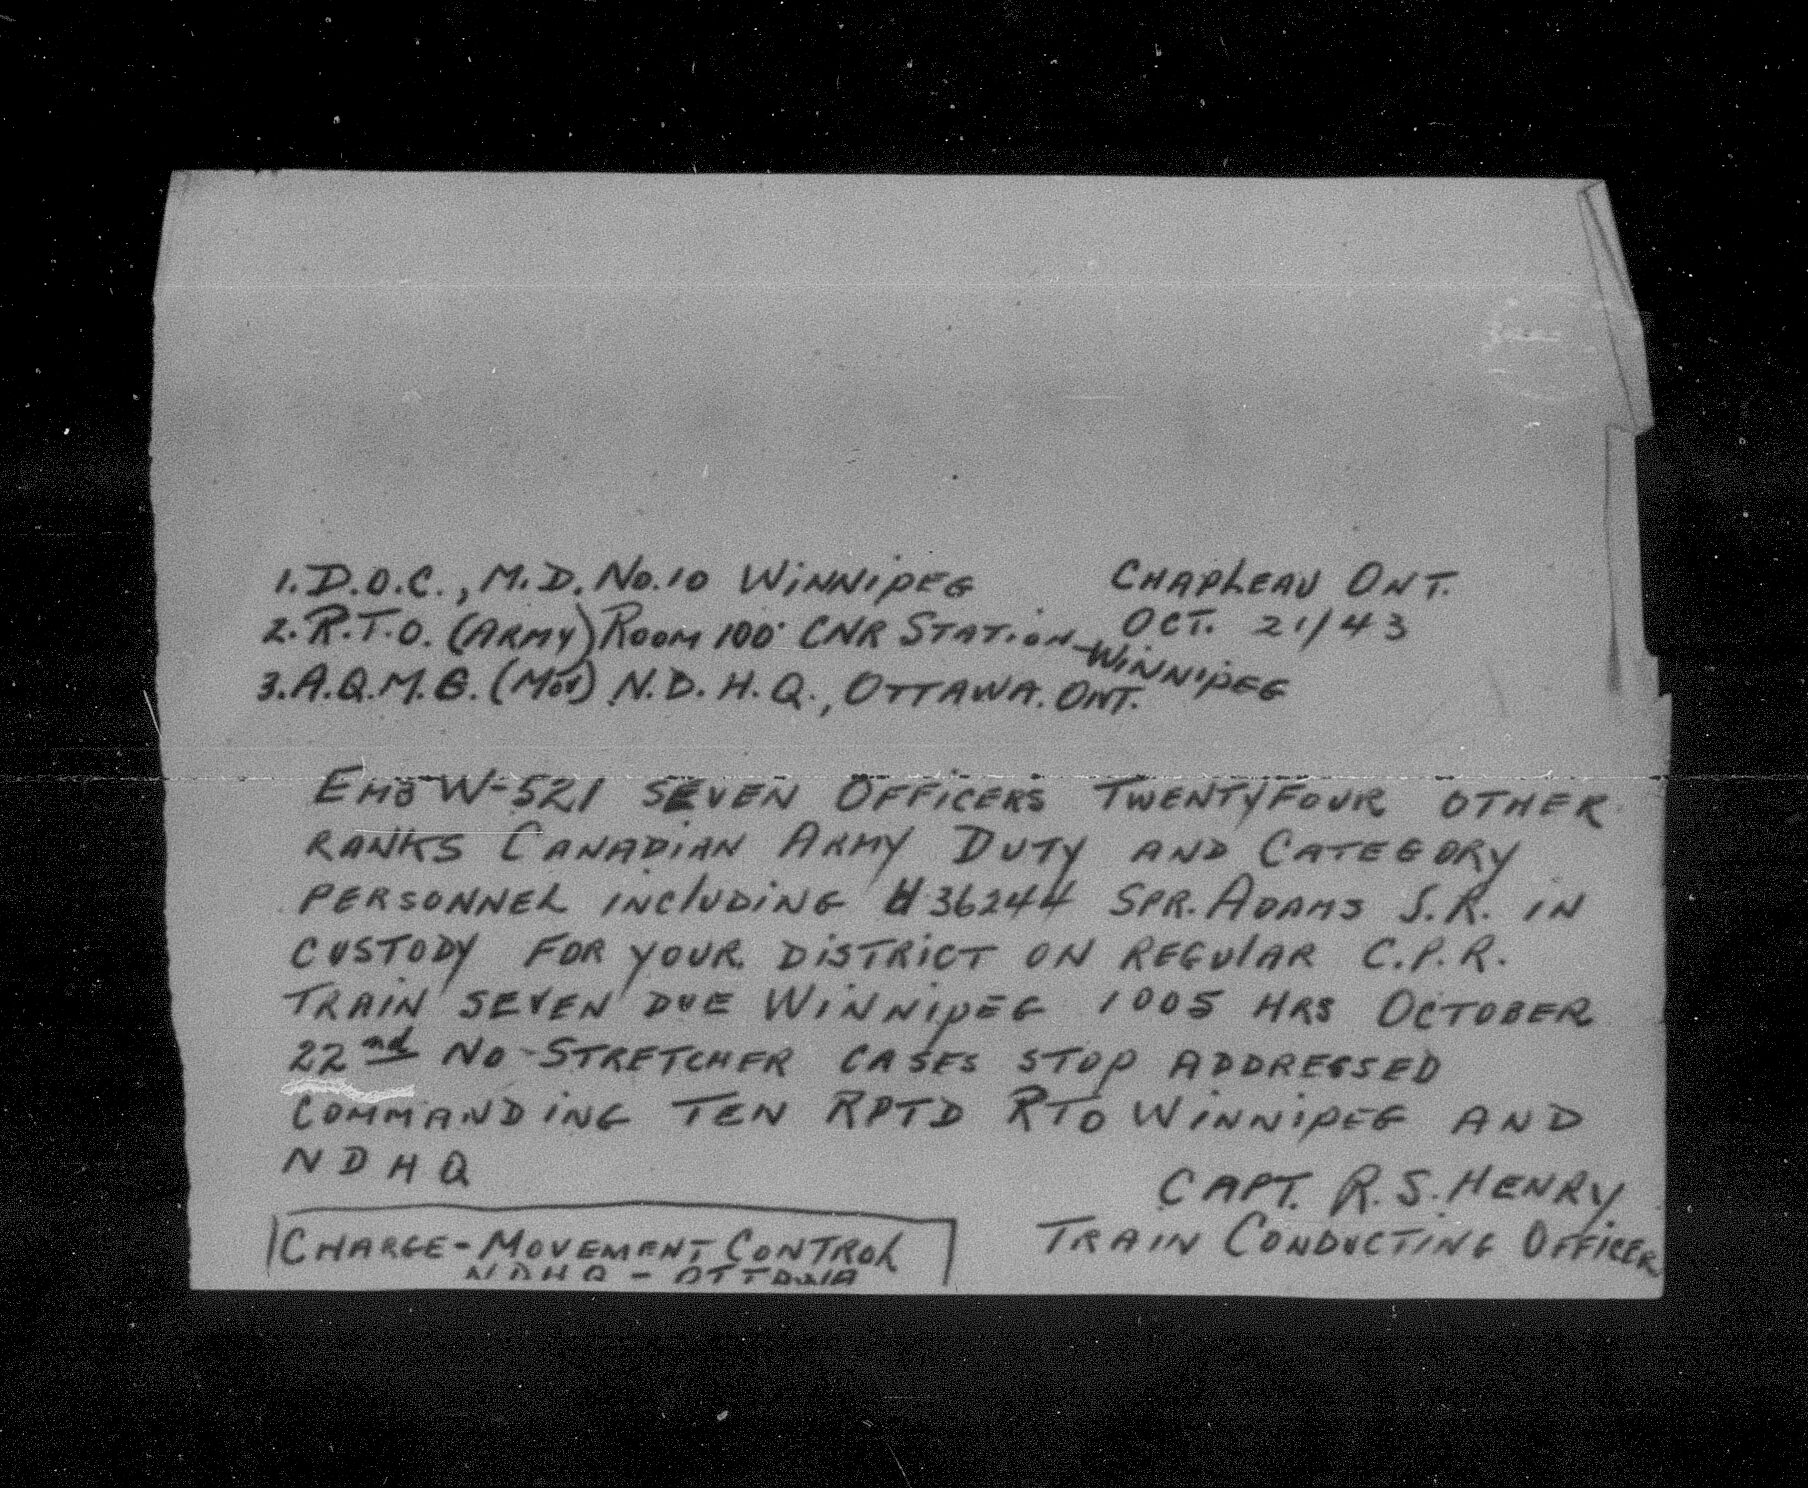 1. D.O.C., M.D. No. 10 Winnipeg
2. R.T.O. (Army) Room 100 CNR Station - Winnipeg
3. A.Q.M.G. (Mov) N.D.H.Q., Ottawa. Ont.
Chapleau Ont.
Oct. 21/43
Emb W-521 seven Officers Twentyfour other
ranks Canadian Army Duty and Category
personnel including H 36244 Spr. Adams S.R. in
custody for your district on regular C.P.R.
Train seven due Winnipeg 1005 hrs October
22nd No Stretcher cases stop addressed
commanding Ten Rptd RTO Winnipeg and
NDHQ
Capt. R.S. Henry
Train Conducting Officer
Charge - Movement Control
NDHQ - Ottawa